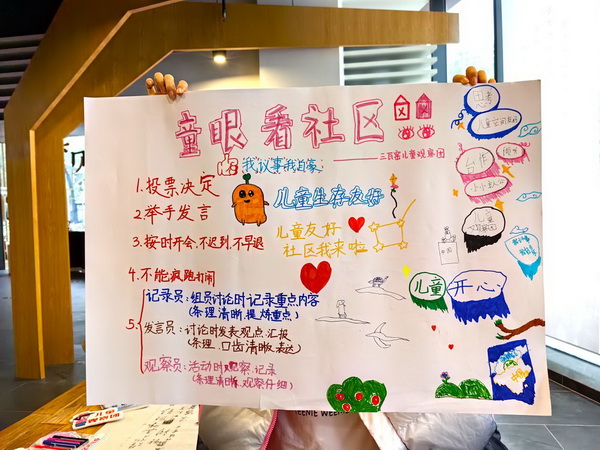 童眼看社区
我议事我自豪:
——三瓦窑儿童观察团
1.投票决定
2.举手发言
3.按时开会,不迟到,不早退
4.不能疯跑打闹
5.
记录员:组员讨论时记录重点内容
(条理清晰,提炼重点)
发言员:讨论时发表观点.汇报
(条理、口齿清晰、表达)
观察员:活动时观察、记录
(条理清晰、观察仔细)
儿童生存友好
儿童友好
社区我来啦
思考
儿童空间友好
合作
小小主人公
儿童
儿童
开心